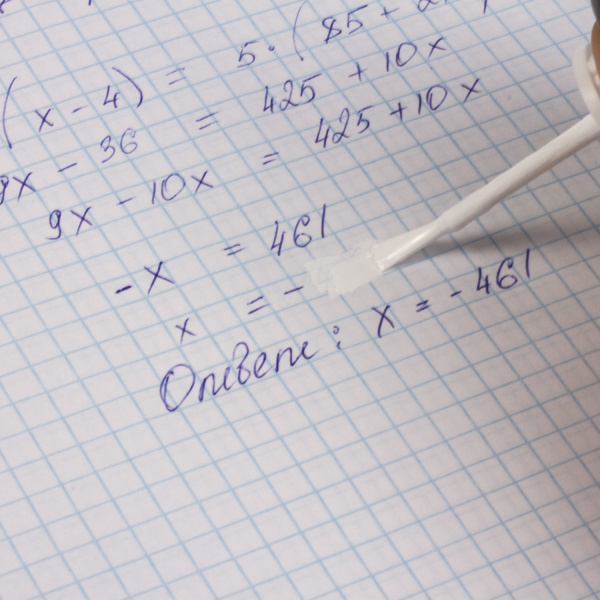 (x - 4) = 5 · (85 + 2
9x - 36 = 425 + 10x
9x - 10x = 425 + 10x
-x = 461
x = -
Ответ: x = -461